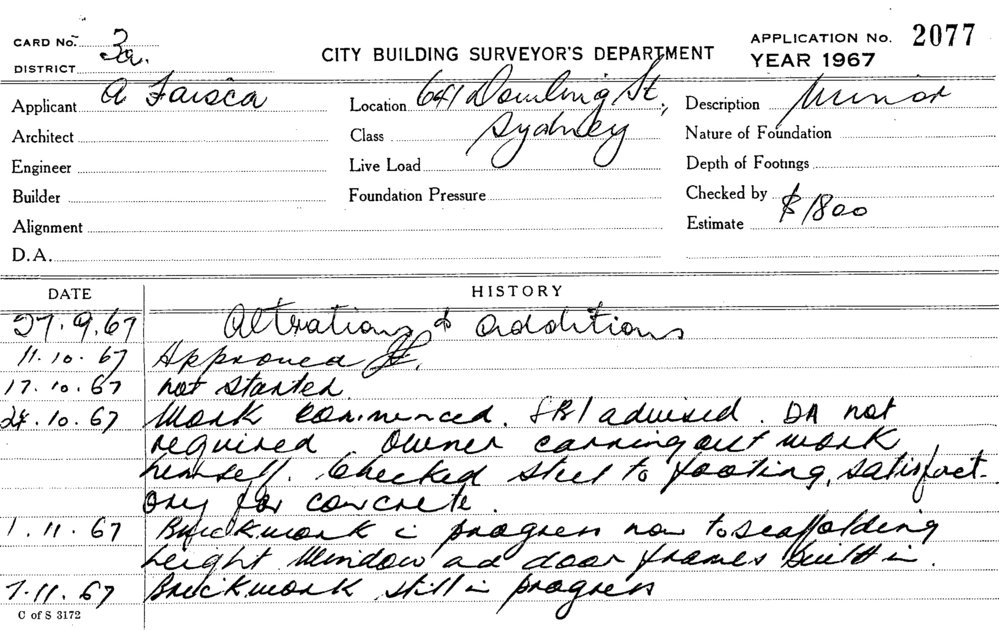 CARD No. 3
DISTRICT 3a.
CITY BUILDING SURVEYOR'S DEPARTMENT
APPLICATION No. 2077
YEAR 1967
Applicant A Faisca
Location 641 Dowling St,
Description Minor
Architect
Class Sydney
Nature of Foundation
Engineer
Live Load
Depth of Footings
Builder
Foundation Pressure
Checked by
Alignment
Estimate $1800
D.A.
DATE HISTORY
27.9.67 Altrations & additions
11.10.67 Approved
17.10.67 not started
24.10.67 Work commenced. SBI advised. DA not
required Owner carrying out work
himself. Checked steel to footing, satisfact-
ory for concrete.
1.11.67 Brickwork in progress now to scaffolding
height Window ad door frames built in.
7.11.67 Brickwork still in progress
C of S 3172